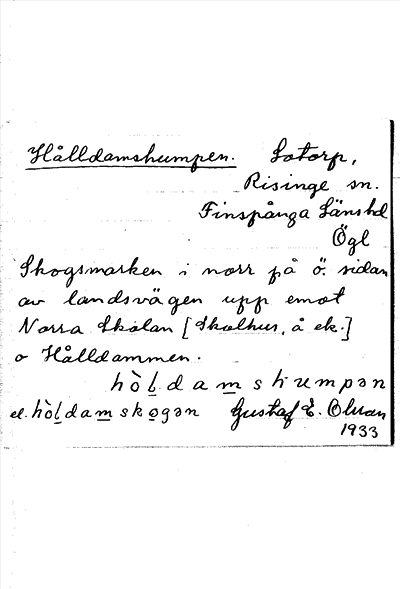 Hålldamshumpen. Lotorp,
Risinge sn.
Finspånga Länshd
Ögl
Skogsmarken i norr på ö. sidan
av landsvägen upp emot
Norra Skolan [Skolhus, å ek.]
o Hålldammen.
hòl̲damshumpən
el. hòl̲dam̲sko̲gən Gustaf E. Olsson
1933